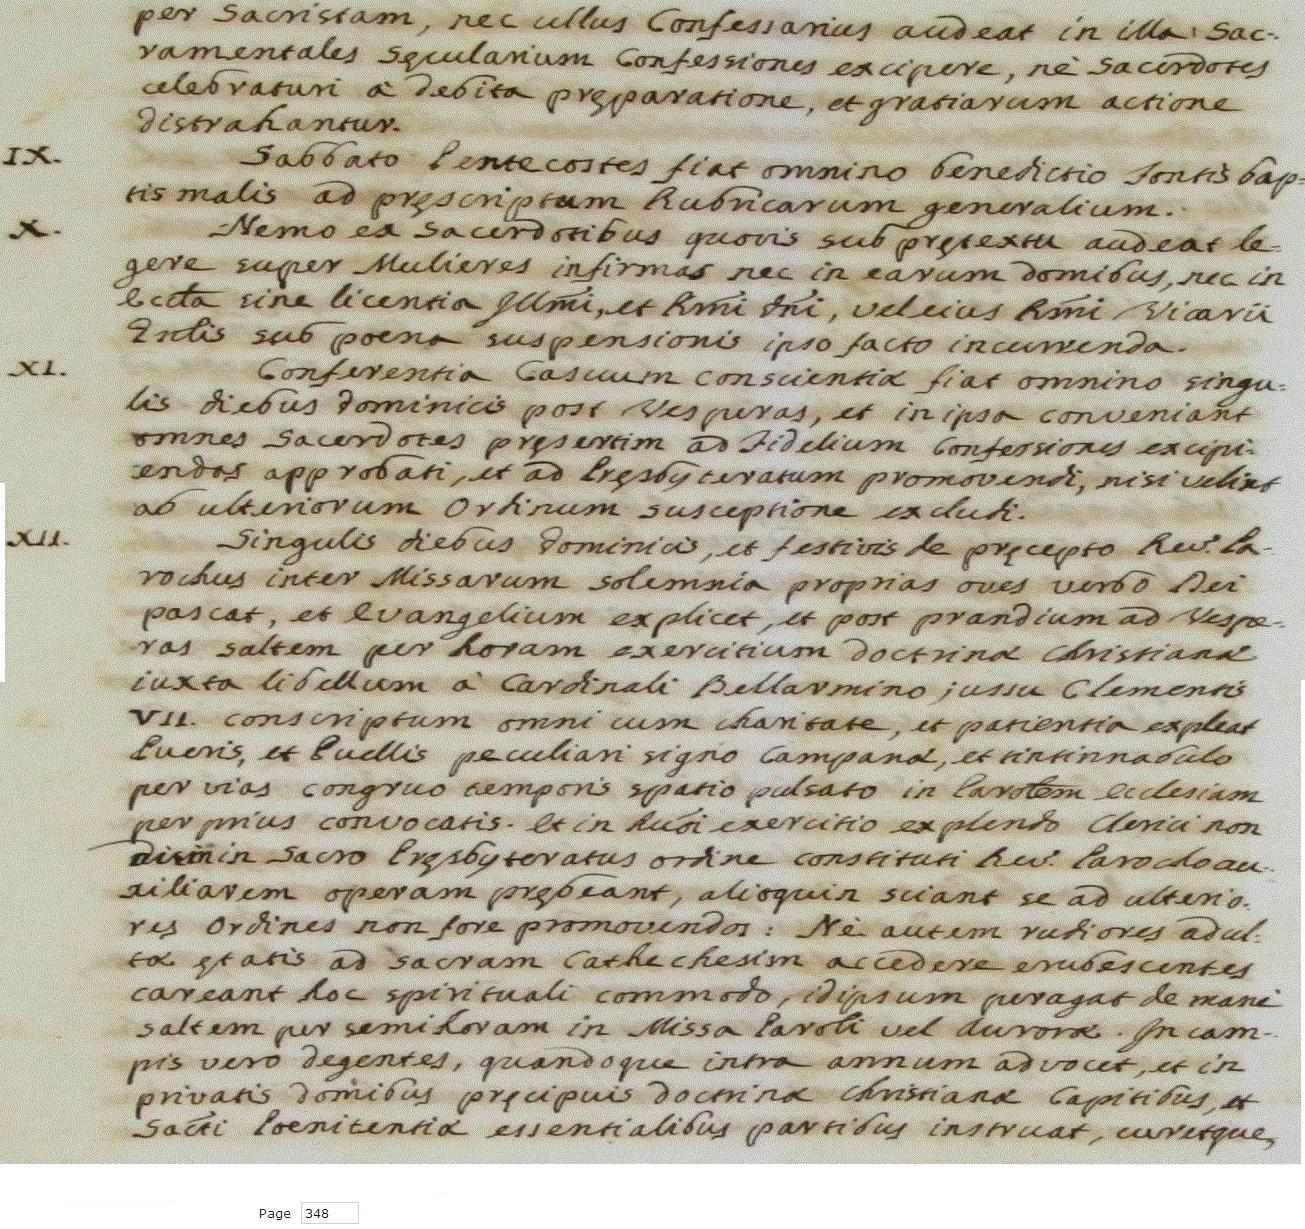 per Sacristam, nec ullus Confessarius audeat in illa Sac-
ramentales Sęcularium Confessiones excipere, nè Sacerdotes
celebraturi à debita pręparatione, et gratiarum actione
distrahantur.
IX. Sabbato Pentecostes fiat omnino benedictio fontis bap-
tismalis ad pręscriptum Rubricarum generalium.
X. Nemo ex Sacerdotibus quovis sub prętextu audeat le-
gere super Mulieres infirmas nec in earum domibus, nec in
Eccłia sine licentia Illm̃i, et Rm̃i Dñi, vel eius Rm̃i Vicarii
Gnlis sub poena suspensionis ipso facto incurrenda.
XI. Conferentia Casuum conscientiæ fiat omnino singu-
lis diebus dominicis post Vesperas, et in ipsa conveniant
omnes Sacerdotes pręsertim ad Fidelium Confessiones excipi-
endas approbati, et ad Pręsbyteratum promovendi, nisi velint
ab ulteriorum Ordinum susceptione excludi.
XII. Singulis diebus dominicis, et festivis de pręcepto Rev. Pa-
rochus inter Missarum solemnia proprias oves verbo Dei
pascat, et Evangelium explicet, et post prandium ad Vespe-
ras saltem per horam exercitium doctrinæ Christianæ
iuxta libellum à Cardinali Bellarmino jussu Clementis
VII. conscriptum omni cum charitate, et patientia expleat
Pueris, et Puellis peculiari signo Campanæ, et tintinnabulo
per vias congruo temporis spatio pulsato in Parołem Ecclesiam
per prius convocatis. Et in huiõi exercitio explendo Clerici non
in Sacro Pręsbyteratus ordine constituti Rev. Parocho au-
xiliarem operam prębeant, alioquin sciant se ad ulterio-
res Ordines non fore promovendos: Nè autem rudiores adul-
tæ ętatis ad sacram Cathechesim accedere erubescentes
careant hoc spirituali commodo, idipsum peragat de manè
saltem per semihoram in Missa Paroli vel Auroræ. In cam-
pis vero degentes, quandoque intra annum advocet, et in
privatis domibus pręcipuis doctrinæ Christianæ Capitibus, et
Sacti Poenitentiæ essentialibus partibus instruat, curetque,
Page 348